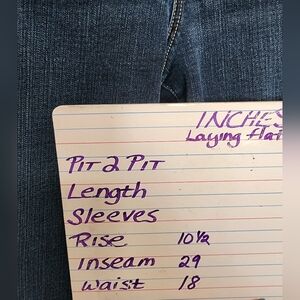 INCHES
Laying flat
PIT 2 PIT
Length
Sleeves
Rise 10½
Inseam 29
Waist 18